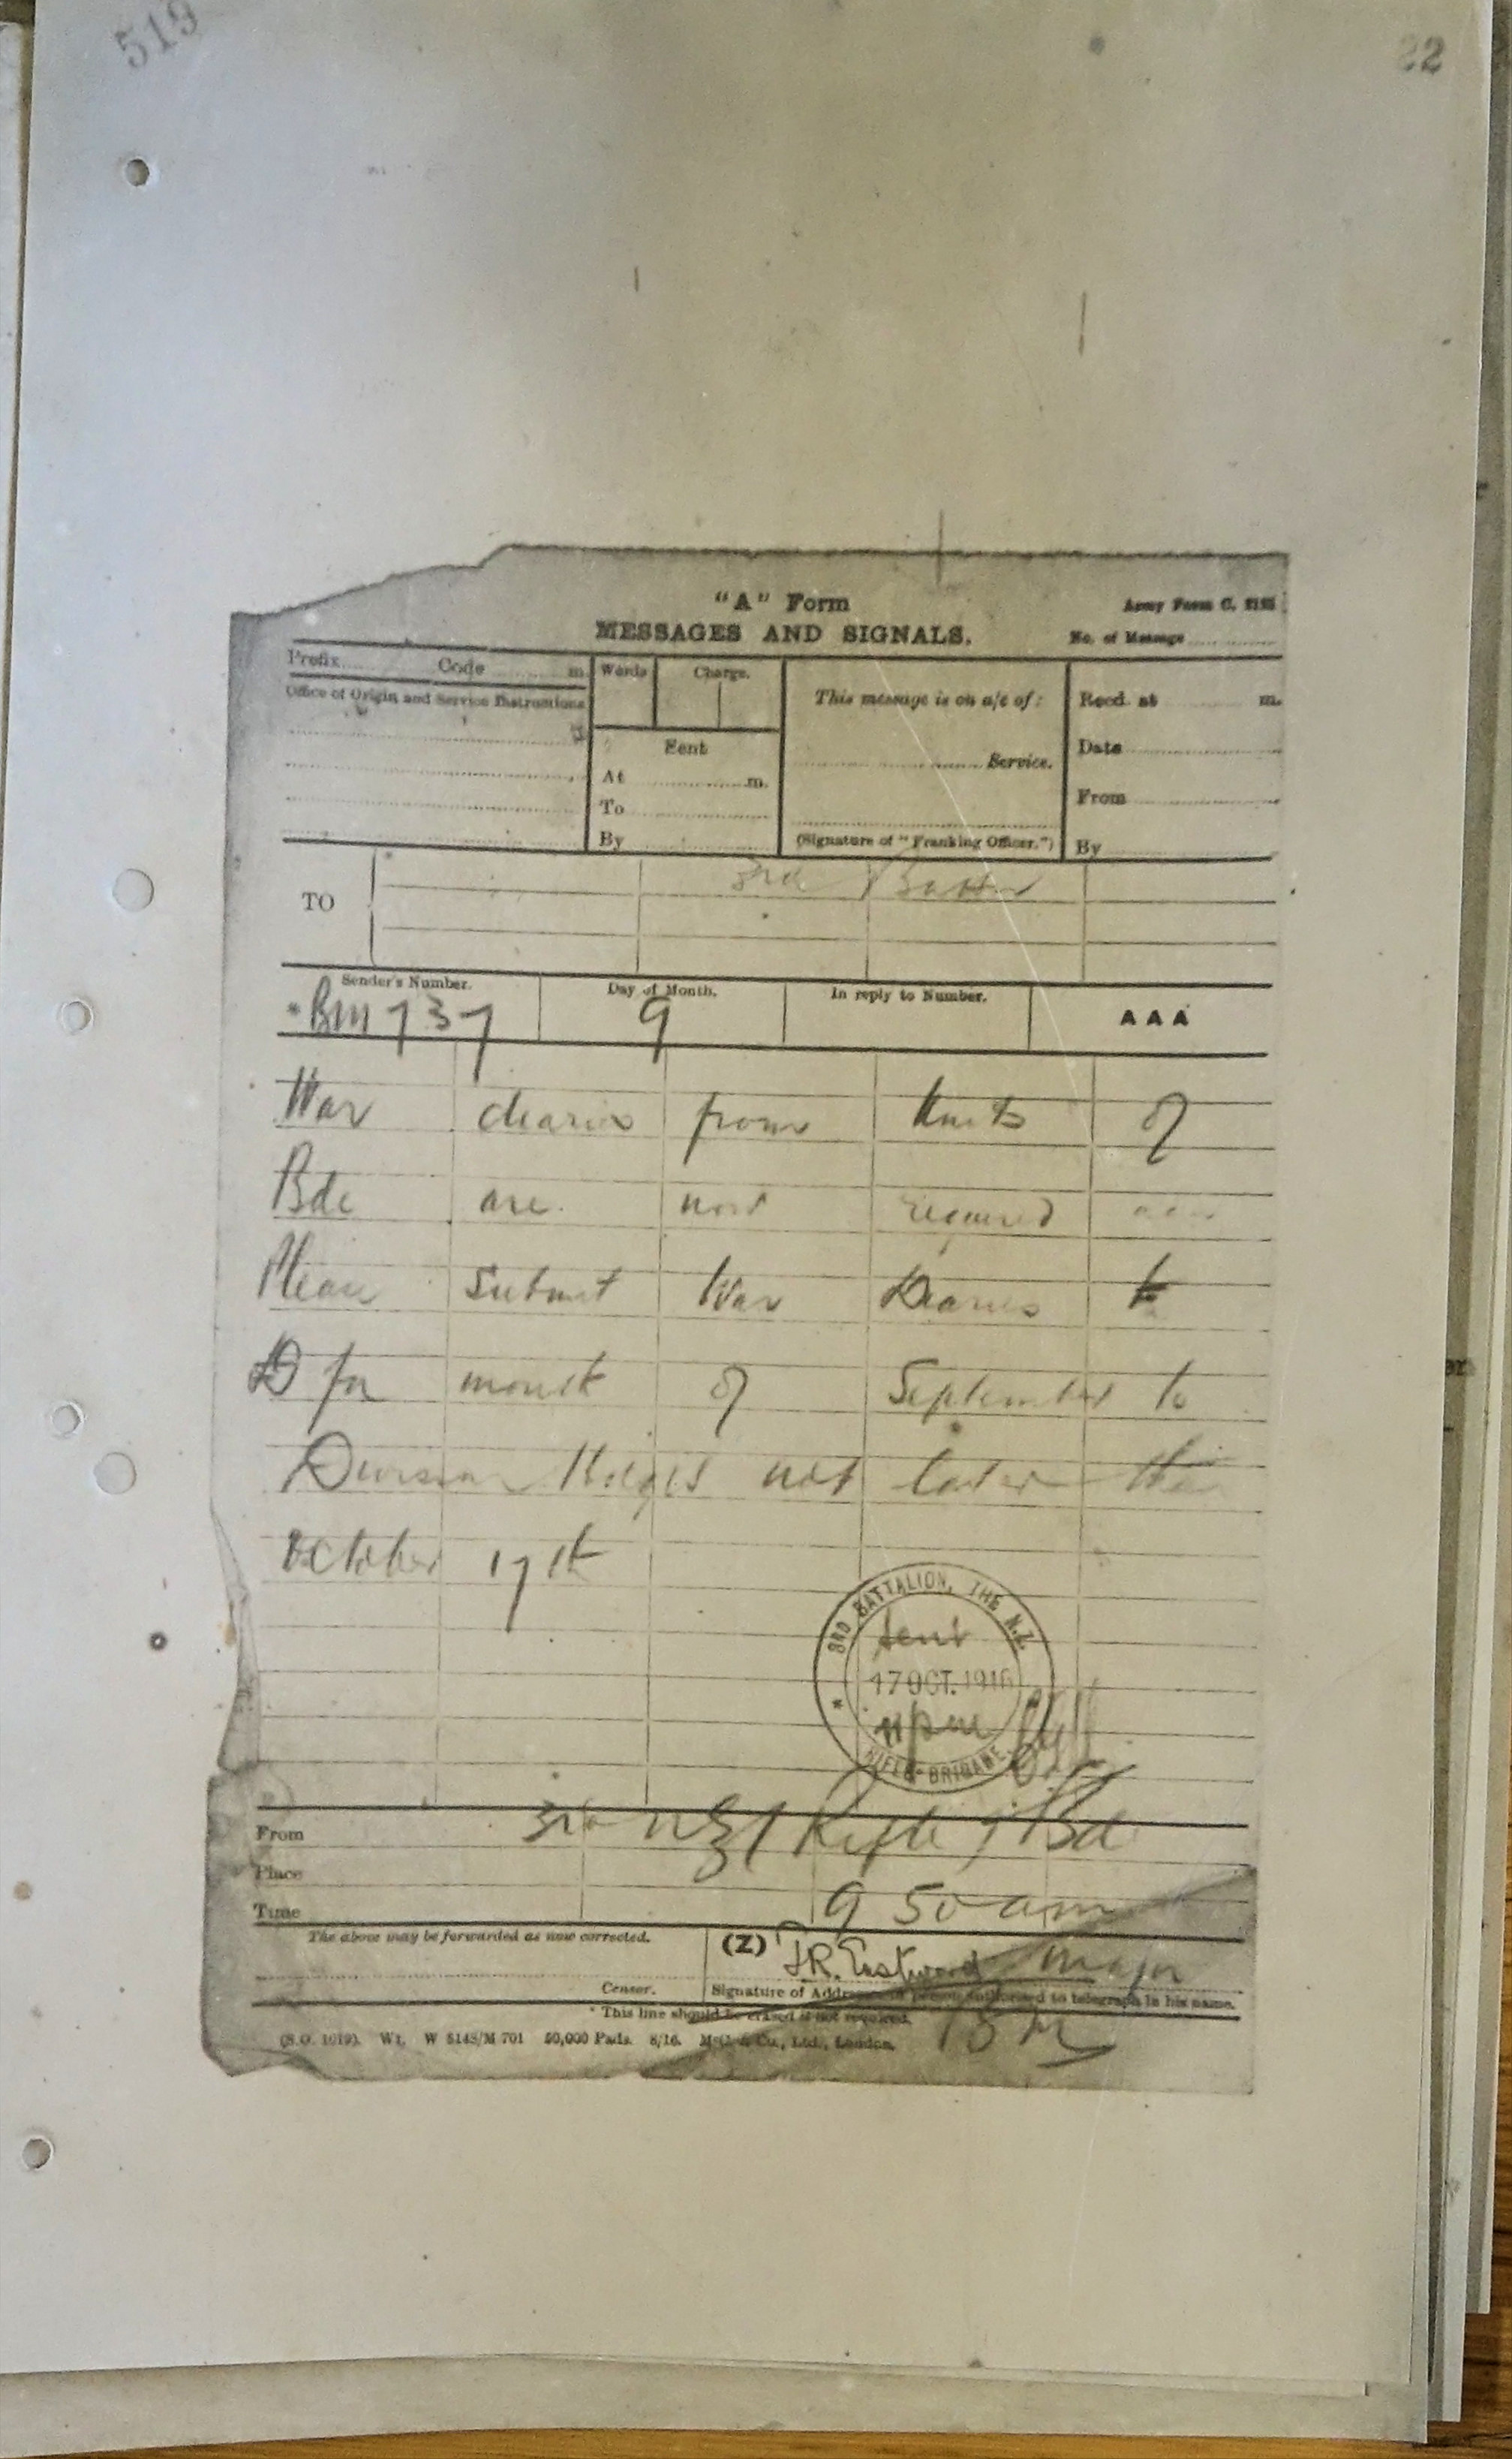 519
22
"A" Form
Army Form C. 2121
MESSAGES AND SIGNALS.
No. of Message
Prefix Code m.
Words Charge.
This message is on a/c of:
Recd. at m.
Office of Origin and Service Instructions
Sent
Date
Service.
At m.
From
To
By
(Signature of "Franking Officer.")
By
TO
3rd Battn
Sender's Number.
Day of Month.
In reply to Number.
AAA
* BM 737
9
War diaries from Units of
Bde are now required aaa
Please submit War Diaries
for month of September to
Division Hdqrs not later than
October 17th
3RD BATTALION, THE N.Z. RIFLE BRIGADE
sent
17 OCT. 1916
11 pm
From
3rd NZ Rifle Bde
Place
Time
9 50 am
The above may be forwarded as now corrected.
(Z)
T.R. Eastwood Major
Censor.
Signature of Addressor or person authorised to telegraph in his name.
* This line should be erased if not required.
BM
(S.O. 1019). Wt. W 5148/M 701 50,000 Pads. 8/16. McC. & Co., Ltd., London.